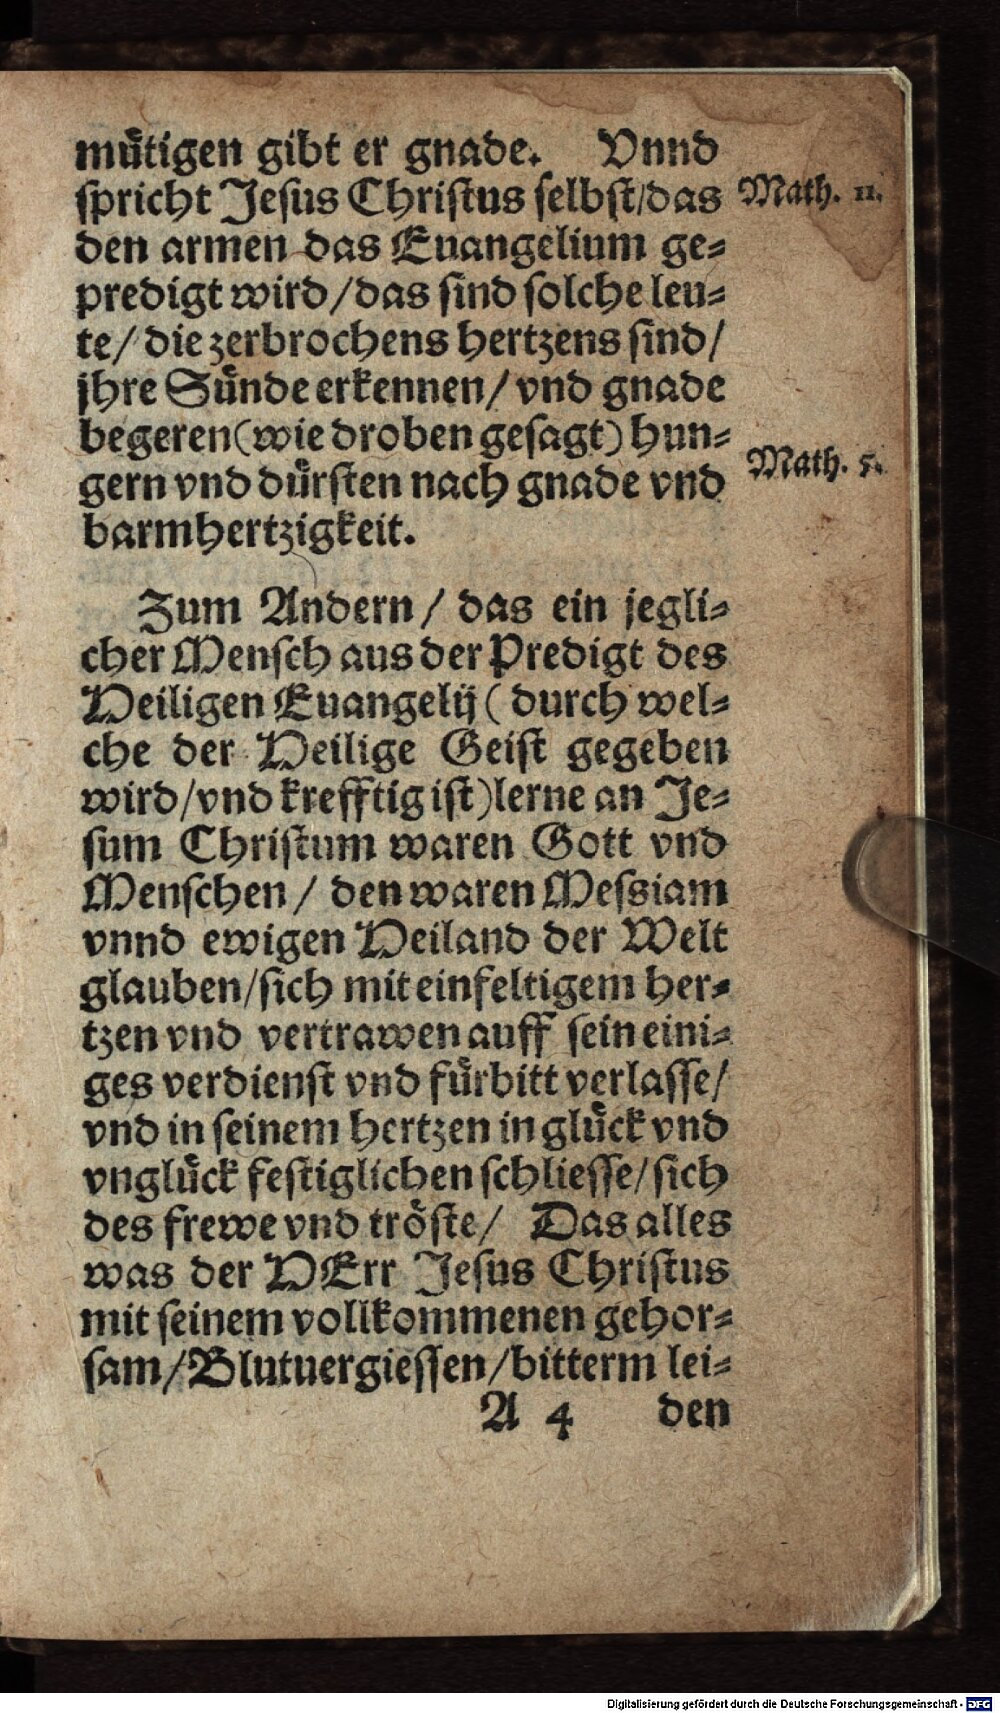 muͤtigen gibt er gnade. Vnnd
ſpricht Jeſus Chriſtus ſelbſt/das
Math. 11.
den armen das Euangelium ge⸗
predigt wird/das ſind ſolche leu⸗
te/ die zerbrochens hertzens ſind/
jhre Suͤnde erkennen/ vnd gnade
begeren(wie droben geſagt) hun⸗
gern vnd duͤrſten nach gnade vnd
Math. 5.
barmhertzigkeit.
Zum Andern / das ein jegli⸗
cher Menſch aus der Predigt des
Heiligen Euangelij ( durch wel⸗
che der Heilige Geiſt gegeben
wird/vnd krefftig iſt)lerne an Je⸗
ſum Chriſtum waren Gott vnd
Menſchen / den waren Meſsiam
vnnd ewigen Heiland der Welt
glauben/ſich mit einfeltigem her⸗
tzen vnd vertrawen auff ſein eini⸗
ges verdienſt vnd fuͤrbitt verlaſſe/
vnd in ſeinem hertzen in gluͤck vnd
vngluͤck feſtiglichen ſchlieſſe/ſich
des frewe vnd troͤſte/ Das alles
was der HErr Jeſus Chriſtus
mit ſeinem vollkommenen gehor⸗
ſam/Blutuergieſſen/bitterm lei⸗
A 4 den
Digitalisierung gefördert durch die Deutsche Forschungsgemeinschaft - DFG